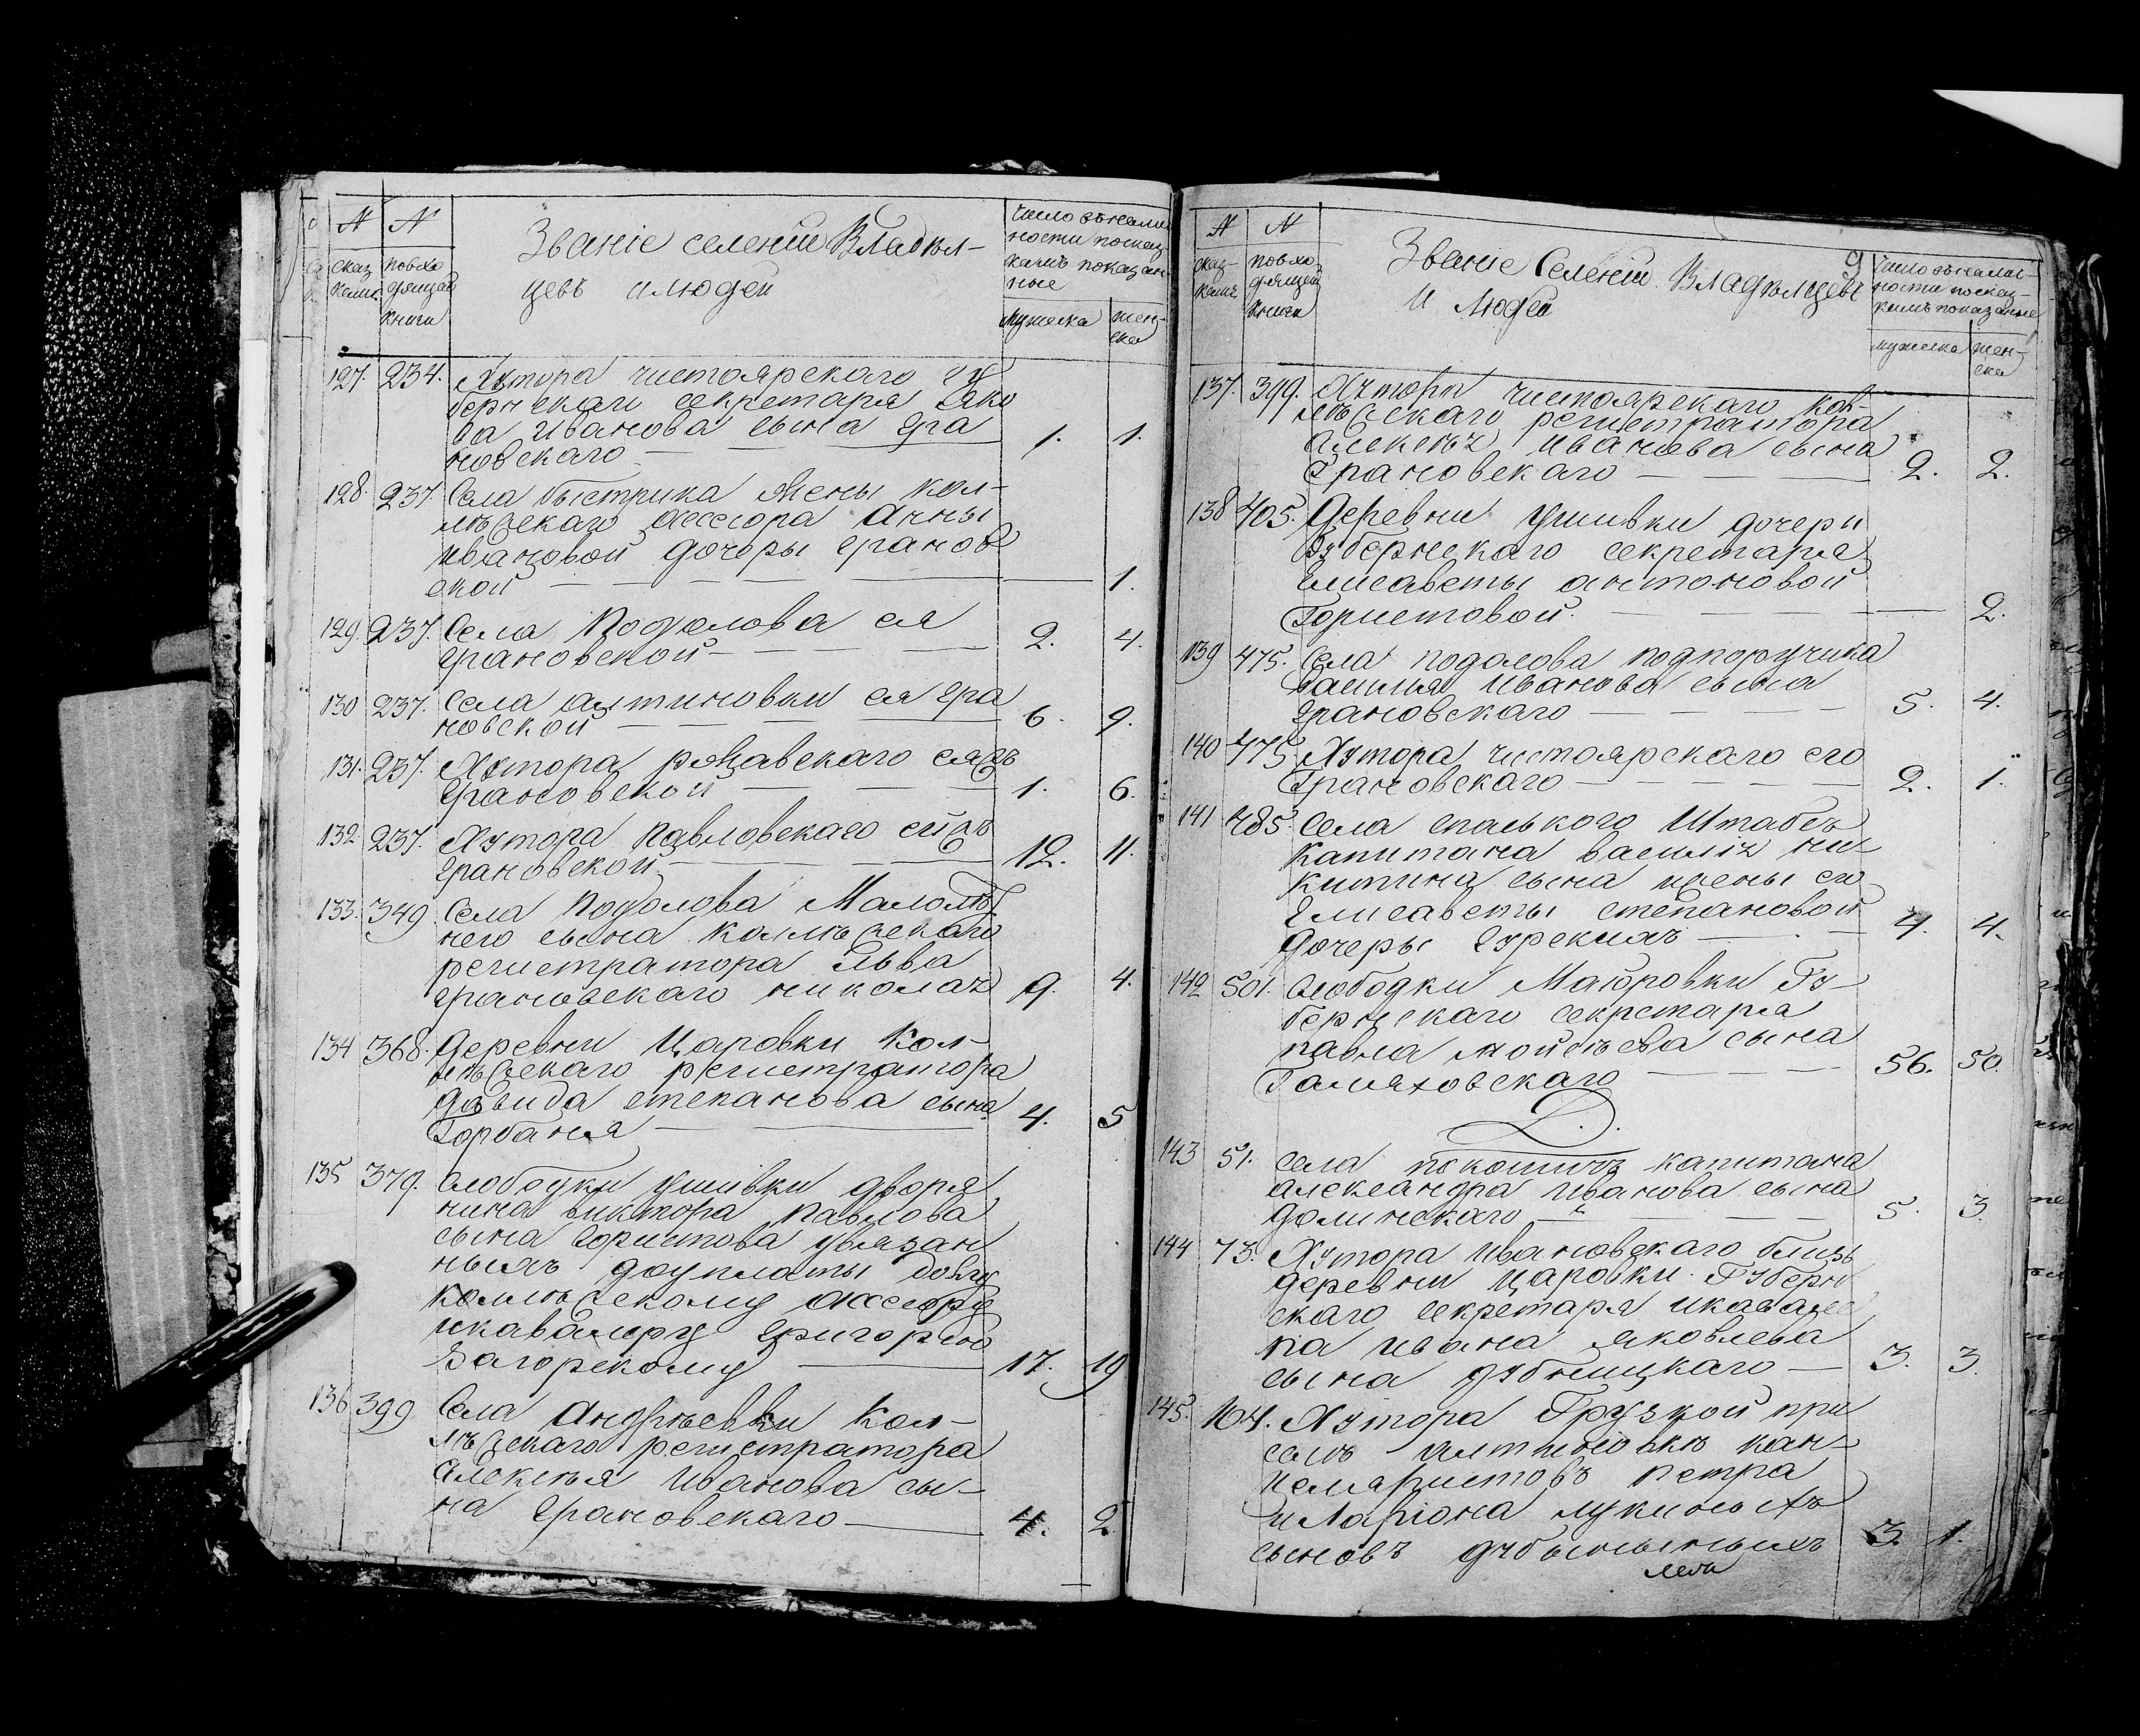 № № Званіе селеніи Владѣл- Число въ нали
сказ повхо цевъ и людей ности посказ
камъ дящей камъ показан
книги ные
мужеска жен-
ска
127. 234. Хутора чистоярскаго гу
бернскаго секретаря Яко
ва Иванова сына Гра
новскаго 1. 1.
128. 237. Села быстрика жены кол-
лѣжскаго ассесора Анны
Ивановой дочеры Гранов
ской 1.
129. 237. Села Подолова ея
Грановской 2. 4.
130 237. Села алтиновки ея Гра
новской 6. 9.
131. 237. Хутора ржавскаго ея жъ
Грановской 1. 6.
132. 237. Хутора Павловскаго ей жъ
Грановской 12. 11.
133. 349 Села Подолова Малолѣт
него сына коллѣжскаго
регистратора Льва
Грановскаго николая 9. 4.
134 368. Деревни Царовки Кол-
лѣжскаго регистратора
Давида степанова сына
Горбаня 4. 5
135 379. Слободки ушивки дворя
нина виктора павлова
сына Гористова увязан
ныхъ доуплаты долгу
коллѣжскому ассесору
икавалеру Григорію
Загорскому 17. 19
136 399 Села Андрѣевки Кол-
лѣжскаго регистратора
Алексѣя Иванова сы-
на Грановскаго 4. 2
9
№ № Званіе Селеніи Владѣлцевъ Число въ налич-
сказ- повхо и людей ности посказ-
камъ дящей камъ показаные
книги мужеска жен-
ска
137. 399. Хутора чистоярскаго кол-
лѣжскаго регистратора
Алексѣя Иванова сына
Грановскаго 2. 2.
138 405. Деревни Ушивки дочери
Губернскаго секретаря
Елисаветы антоновой
Гористовой 2.
139 475. Села подолова подпоручика
василия Иванова сына
Грановскаго 5. 4.
140 475 Хутора чистоярскаго его
Грановскаго 2. 1.
141 485. Села спаського Штабсъ
Капитана василия ни-
китина сына жены его
Елисаветы степановой
дочеры 4. 4.
142 501. Слободки Маіоровки Гу-
бернскаго секретаря
павла мойсѣева сына
Галяховскаго 56. 50.
Д.
143 51. Села покошичъ капитана
александра Иванова сына
долинскаго 5. 3.
144 73. Хутора Ивановскаго близь
деревни царовки Губерн
скаго секретаря икавале
ра ивана яковлева
сына дубницкаго 3. 3.
145. 104. Хутора Грузкой при
селѣ алтиновкѣ кан-
целяристовъ петра
и Ларіона лукиныхъ
сыновъ 3. 1.